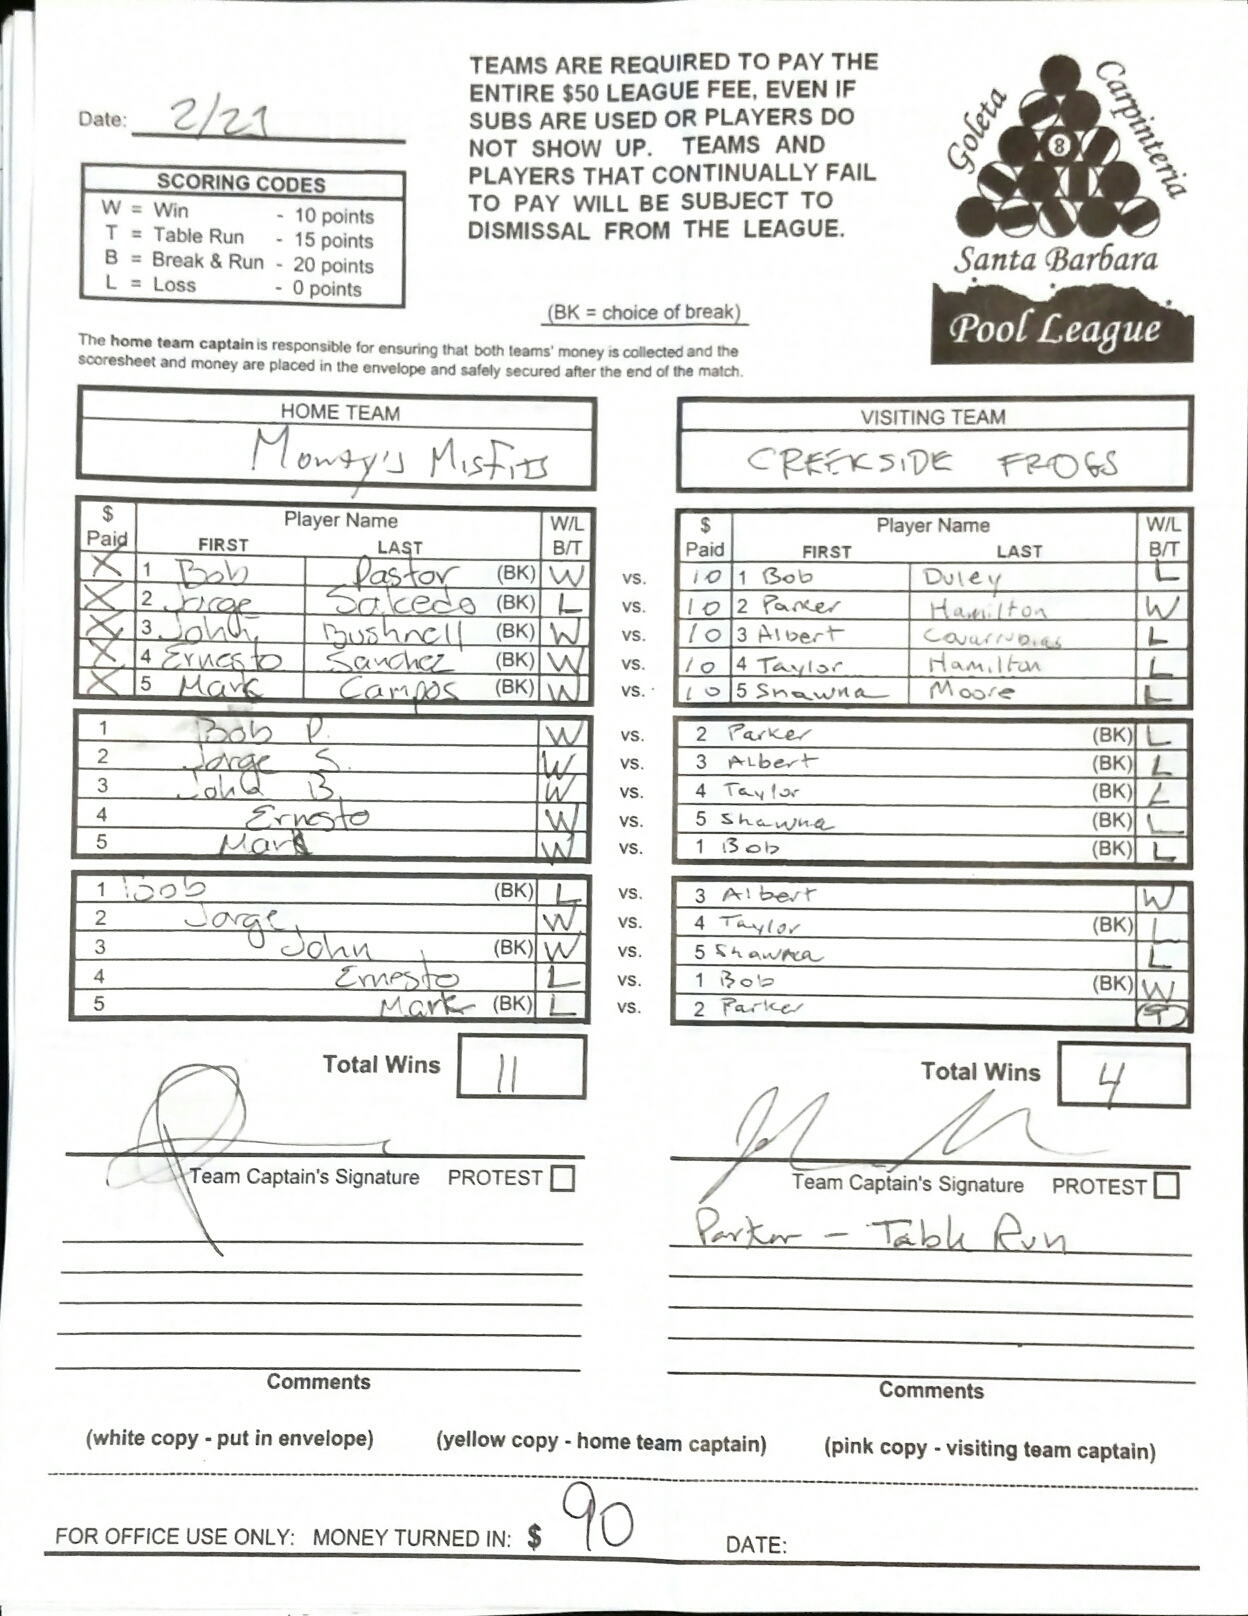 Date: 2/21
TEAMS ARE REQUIRED TO PAY THE
ENTIRE $50 LEAGUE FEE, EVEN IF
SUBS ARE USED OR PLAYERS DO
NOT SHOW UP. TEAMS AND
PLAYERS THAT CONTINUALLY FAIL
TO PAY WILL BE SUBJECT TO
DISMISSAL FROM THE LEAGUE.
Goleta
Carpinteria
8
Santa Barbara
Pool League
SCORING CODES
W = Win - 10 points
T = Table Run - 15 points
B = Break & Run - 20 points
L = Loss - 0 points
(BK = choice of break)
The home team captain is responsible for ensuring that both teams' money is collected and the
scoresheet and money are placed in the envelope and safely secured after the end of the match.
HOME TEAM VISITING TEAM
Monty's Misfits CREEKSIDE FROGS
$ Paid Player Name FIRST LAST W/L B/T $ Paid Player Name FIRST LAST W/L B/T
X 1 Bob Pastor (BK) W vs. 10 1 Bob Duley L
X 2 Jorge Salcedo (BK) L vs. 10 2 Parker Hamilton W
X 3 John Bushnell (BK) W vs. 10 3 Albert Covarrubias L
X 4 Ernesto Sanchez (BK) W vs. 10 4 Taylor Hamilton L
X 5 Mark Campos (BK) W vs. 10 5 Shawna Moore L
1 Bob P. W vs. 2 Parker (BK) L
2 Jorge S. W vs. 3 Albert (BK) L
3 John B. W vs. 4 Taylor (BK) L
4 Ernesto W vs. 5 Shawna (BK) L
5 Mark W vs. 1 Bob (BK) L
1 Bob (BK) L vs. 3 Albert W
2 Jorge W vs. 4 Taylor (BK) L
3 John (BK) W vs. 5 Shawna L
4 Ernesto L vs. 1 Bob (BK) W
5 Mark (BK) L vs. 2 Parker T
Total Wins 11 Total Wins 4
Team Captain's Signature PROTEST Team Captain's Signature PROTEST
Parker - Table Run
Comments Comments
(white copy - put in envelope) (yellow copy - home team captain) (pink copy - visiting team captain)
FOR OFFICE USE ONLY: MONEY TURNED IN: $ 90 DATE: